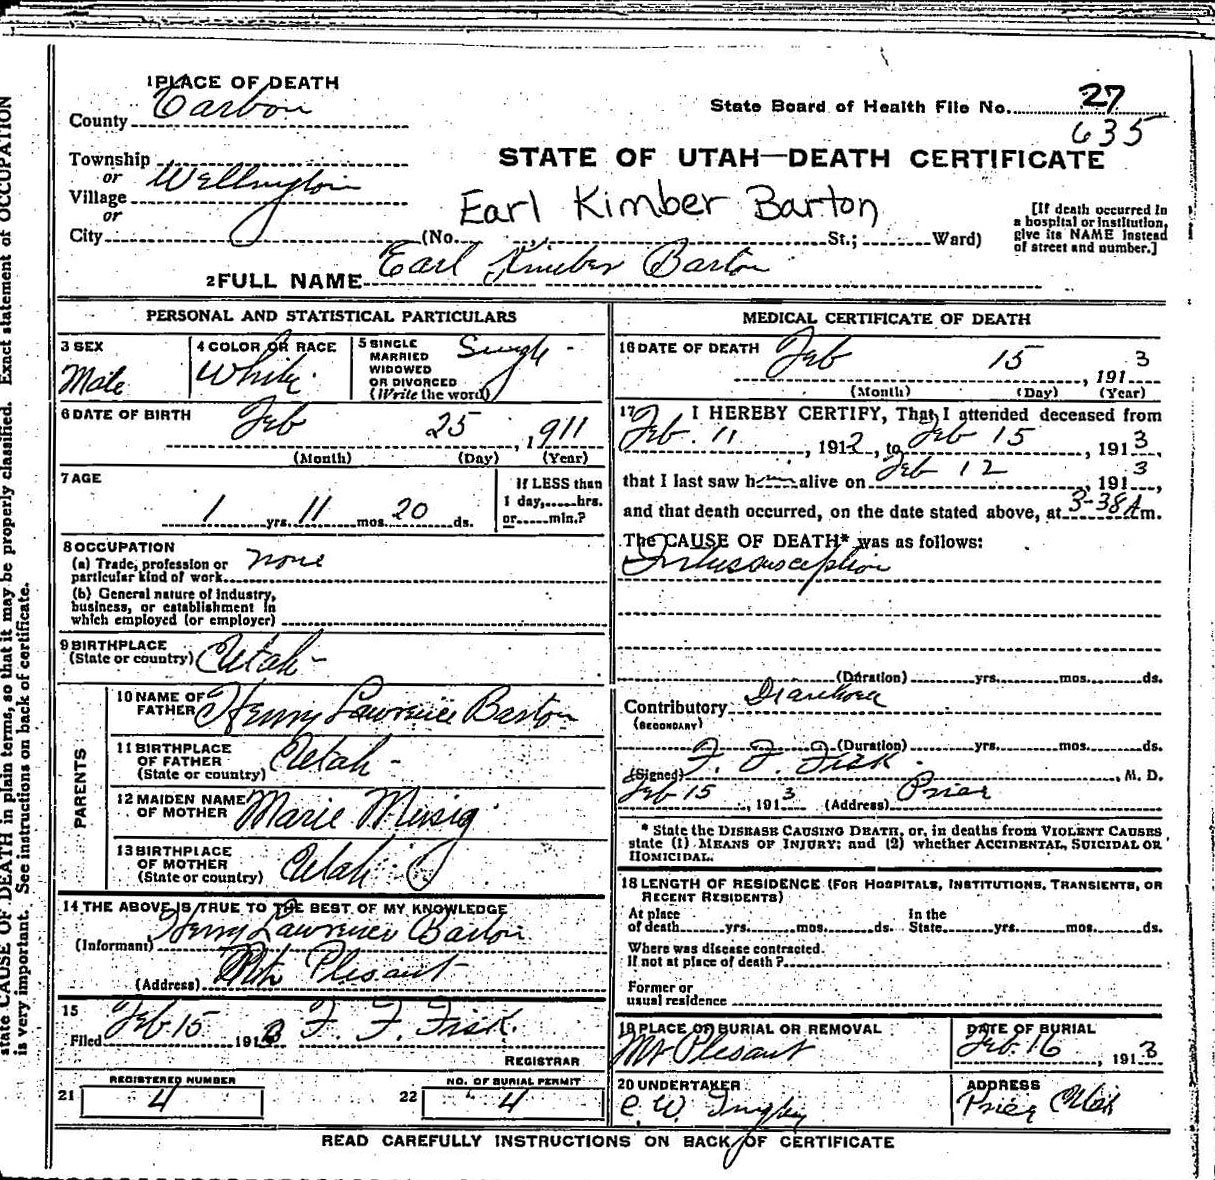 1 PLACE OF DEATH
County Carbon
State Board of Health File No. 27
635
Township
or
Village Wellington
or
City
STATE OF UTAH—DEATH CERTIFICATE
Earl Kimber Barton
(No. St.; Ward)
[If death occurred in
a hospital or institution,
give its NAME instead
of street and number.]
2 FULL NAME Earl Kimber Barton
PERSONAL AND STATISTICAL PARTICULARS
3 SEX
Male
4 COLOR OR RACE
White
5 SINGLE
MARRIED
WIDOWED
OR DIVORCED
(Write the word)
Single
6 DATE OF BIRTH
Feb 25, 1911
(Month) (Day) (Year)
7 AGE
1 yrs. 11 mos. 20 ds.
If LESS than
1 day, hrs.
or min.?
8 OCCUPATION
(a) Trade, profession or
particular kind of work none
(b) General nature of industry,
business, or establishment in
which employed (or employer)
9 BIRTHPLACE
(State or country) Utah -
PARENTS
10 NAME OF
FATHER Henry Lawrence Barton
11 BIRTHPLACE
OF FATHER
(State or country) Utah -
12 MAIDEN NAME
OF MOTHER Marie
13 BIRTHPLACE
OF MOTHER
(State or country) Utah
14 THE ABOVE IS TRUE TO THE BEST OF MY KNOWLEDGE
(Informant) Henry Lawrence Barton
(Address) Mt Plesant
15
Filed Feb 15 1913 F. F. Fisk.
REGISTRAR
REGISTERED NUMBER
21 4
NO. OF BURIAL PERMIT
22 4
MEDICAL CERTIFICATE OF DEATH
16 DATE OF DEATH
Feb 15, 1913
(Month) (Day) (Year)
17 I HEREBY CERTIFY, That I attended deceased from
Feb. 11, 1912, to Feb 15, 1913,
that I last saw him alive on Feb 12, 1913,
and that death occurred, on the date stated above, at 3-38 A m.
The CAUSE OF DEATH* was as follows:
Intussusception
(Duration) yrs. mos. ds.
Contributory Diarrhoea
(SECONDARY)
(Duration) yrs. mos. ds.
(Signed) F. F. Fisk, M. D.
Feb 15, 1913 (Address) Price
* State the DISEASE CAUSING DEATH, or, in deaths from VIOLENT CAUSES
state (1) MEANS OF INJURY; and (2) whether ACCIDENTAL, SUICIDAL OR
HOMICIDAL.
18 LENGTH OF RESIDENCE (FOR HOSPITALS, INSTITUTIONS, TRANSIENTS, OR
RECENT RESIDENTS)
At place
of death yrs. mos. ds.
In the
State yrs. mos. ds.
Where was disease contracted,
If not at place of death?
Former or
usual residence
19 PLACE OF BURIAL OR REMOVAL
Mt Plesant
DATE OF BURIAL
Feb. 16, 1913
20 UNDERTAKER
C. W.
ADDRESS
Price Utah
READ CAREFULLY INSTRUCTIONS ON BACK OF CERTIFICATE
state CAUSE OF DEATH in plain terms, so that it may be properly classified. Exact statement of OCCUPATION
is very important. See instructions on back of certificate.